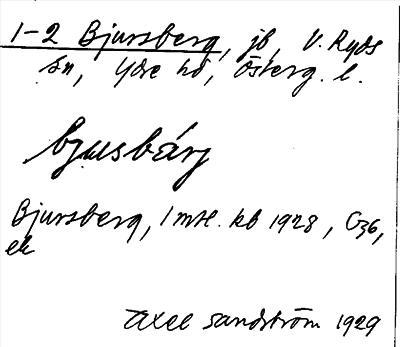 1-2 Bjursberg, jb, V. Ryds
sn, Ydre hd, Österg. l.
bjusbárj
Bjursberg, 1 mtl. kb 1928, G36,
ek
Axel Sandström 1929